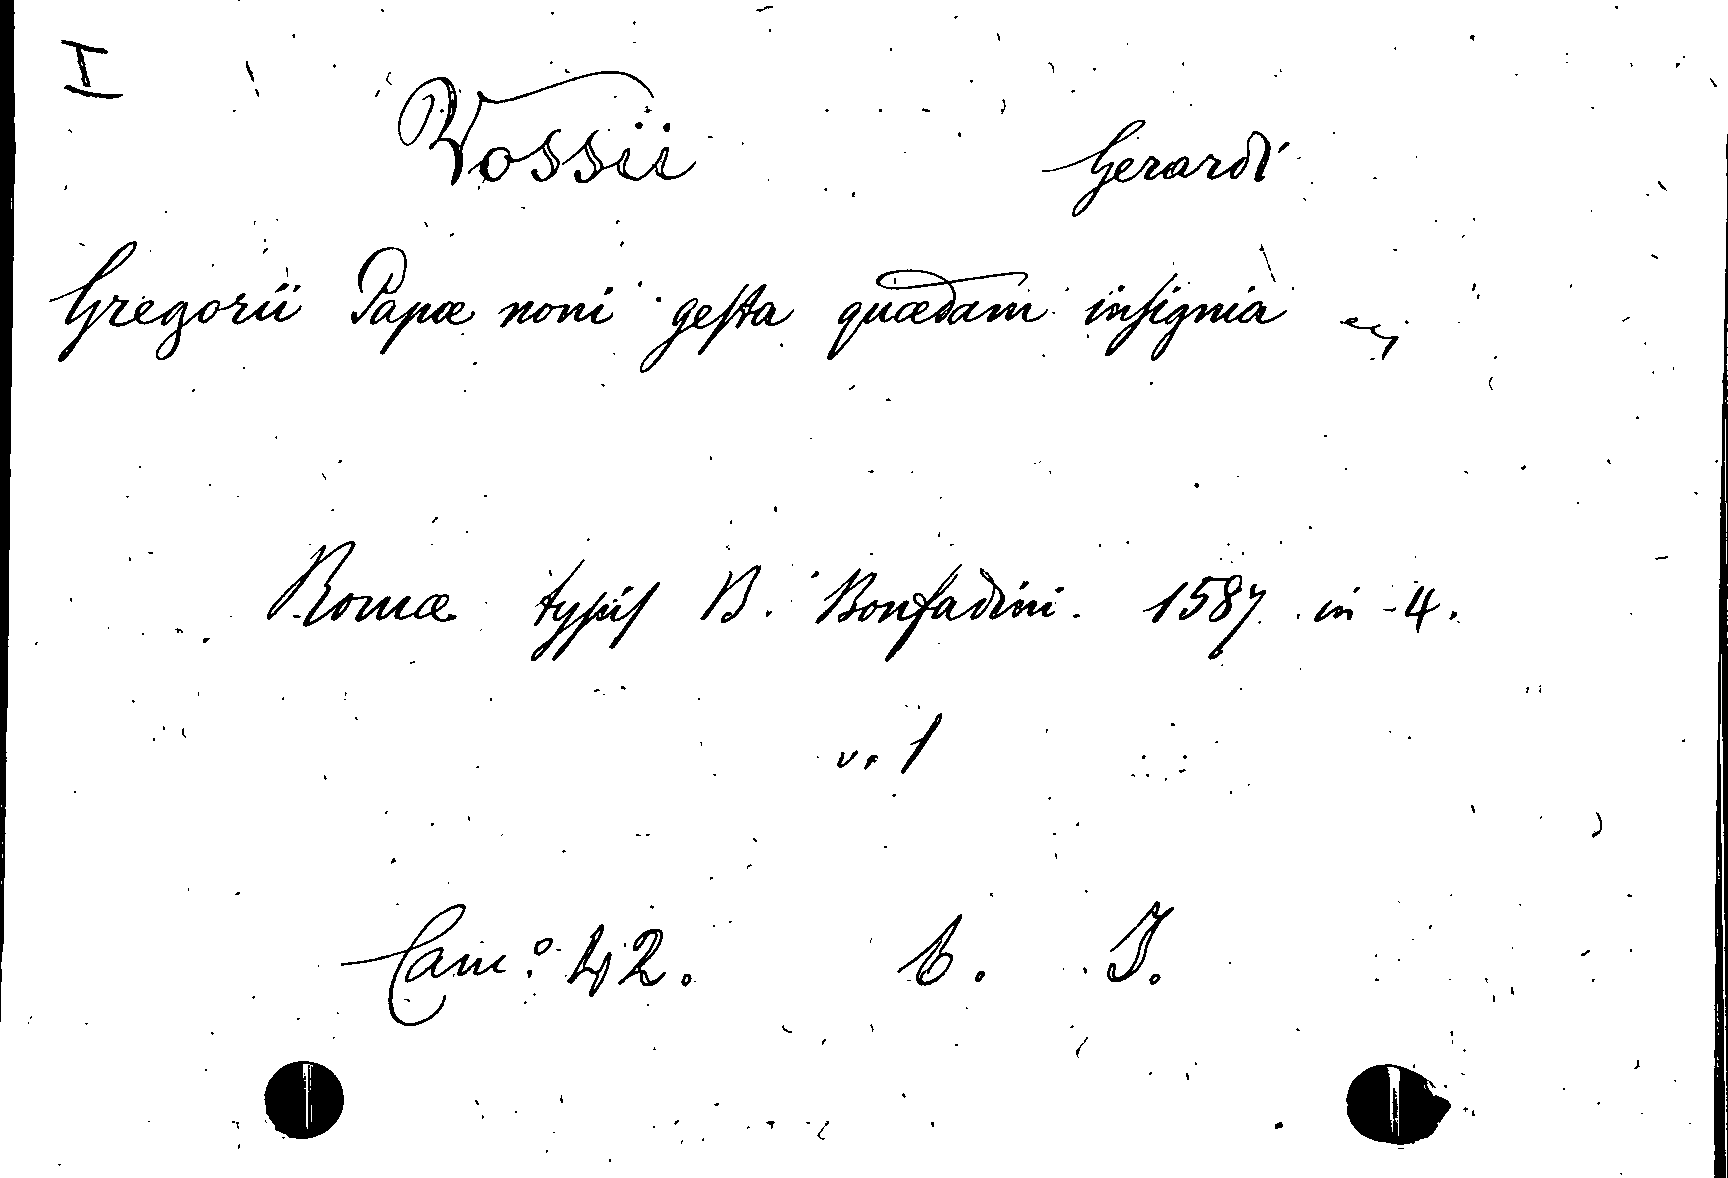 I
Vossii Gerardi
Gregorii Papæ noni gesta quædam insignia
Romæ typis B. Bonfadini. 1587 in 4.
v. 1
Cam.º 42. b. I.